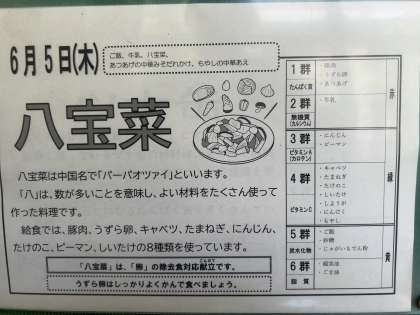 6月5日(木)
ご飯、牛乳、八宝菜、
あつあげの中華みそだれかけ、もやしの中華あえ
八宝菜
八宝菜は中国名で「バーバオツァイ」といいます。
「八」は、数が多いことを意味し、よい材料をたくさん使って
作った料理です。
給食では、豚肉、うずら卵、キャベツ、たまねぎ、にんじん、
たけのこ、ピーマン、しいたけの8種類を使っています。
こんだて
「八宝菜」は、「卵」の除去食対応献立です。
うずら卵はしっかりよくかんで食べましょう。
1群
たんぱく質
・豚肉
・うずら卵
・あつあげ
赤
2群
無機質
(カルシウム)
・牛乳
3群
ビタミンA
(カロテン)
・にんじん
・ピーマン
緑
4群
ビタミンC
・キャベツ
・たまねぎ
・たけのこ
・しいたけ
・しょうが
・にんにく
・もやし
5群
炭水化物
・ご飯
・砂糖
・じゃがいもでん粉
黄
6群
脂質
・ごま油